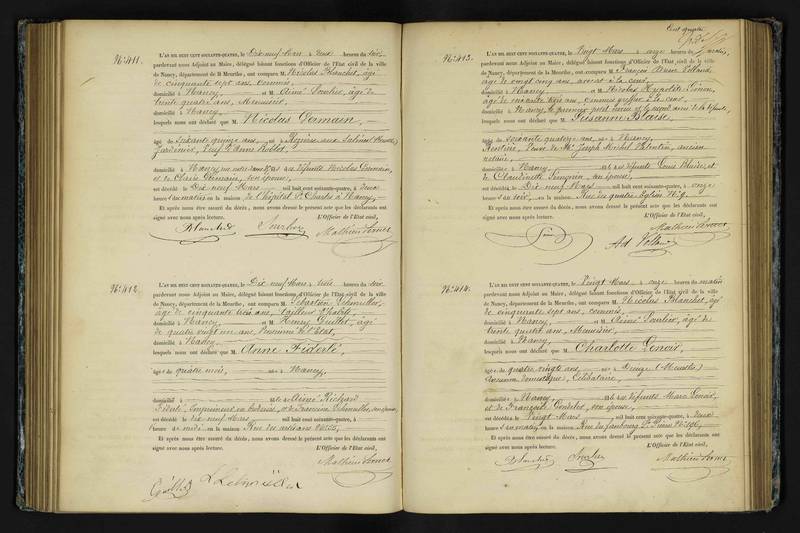 N° 411.
L'AN MIL HUIT CENT SOIXANTE-QUATRE, le Dix neuf Mars à deux heures du soir,
pardevant nous Adjoint au Maire, délégué faisant fonctions d'Officier de l'Etat civil de la ville
de Nancy, département de la Meurthe, ont comparu M. Nicolas Blanchet, âgé
de cinquante sept ans, commis,
domicilié à Nancy et M. Aimé Soulier, âgé de
trente quatre ans, Menuisier,
domicilié à Nancy,
lesquels nous ont déclaré que M. Nicolas Gamain,
âgé de soixante quinze ans, né à Rozières aux Salines (Meurthe)
Jardinier, Veuf d'Anne Rollot,
domicilié à Nancy,
et de Claire Germain, son épouse,
est décédé le Dix neuf Mars mil huit cent soixante-quatre, à deux
heures du matin en la maison de l'hôpital St Charles à Nancy,
Et après nous être assuré du décès, nous avons dressé le présent acte que les déclarants ont
signé avec nous après lecture. L'Officier de l'Etat civil,
Blanchet
N° 412.
L'AN MIL HUIT CENT SOIXANTE-QUATRE, le Dix neuf Mars à trois heures du soir
pardevant nous Adjoint au Maire, délégué faisant fonctions d'Officier de l'Etat civil de la ville
de Nancy, département de la Meurthe, ont comparu M. Sébastien Schmuller,
âgé de cinquante trois ans, tailleur d'habits,
domicilié à Nancy et M. Henry Guillet, âgé
de quatre vingt un ans,
domicilié à Nancy
lesquels nous ont déclaré que M. Anne Fiderlé,
âgée de quatre mois, née à Nancy,
domiciliée à et de Aimée Richard
Fiderlé, Imprimeur
est décédée le dix neuf Mars mil huit cent soixante-quatre, à
heure de midi en la maison Rue des artisans
Et après nous être assuré du décès, nous avons dressé le présent acte que les déclarants ont
signé avec nous après lecture. L'Officier de l'Etat civil,
N° 413.
L'AN MIL HUIT CENT SOIXANTE-QUATRE, le Vingt Mars à onze heures du matin,
pardevant nous Adjoint au Maire, délégué faisant fonctions d'Officier de l'Etat civil de la ville
de Nancy, département de la Meurthe, ont comparu M. François Adam Volland,
âgé de vingt cinq ans, avocat à la cour,
domicilié à Nancy et M. Nicolas Hyacinthe Simon,
âgé de soixante trois ans, commis greffier à la cour,
domicilié à Nancy, le premier petit neveu et le second ami de la défunte,
lesquels nous ont déclaré que M. Suzanne Blaise,
âgée de soixante quatorze ans, née à Nancy,
Rentière, Veuve de Mr Joseph Michel Valentin, ancien
notaire,
domiciliée à Nancy, et de défunts Louis Blaise, et
de Claudinette son épouse,
est décédée le Dix neuf Mars mil huit cent soixante-quatre, à onze
heures du soir, en la maison Rue des quatre Eglises N° 9
Et après nous être assuré du décès, nous avons dressé le présent acte que les déclarants ont
signé avec nous après lecture. L'Officier de l'Etat civil,
Ad. Volland
N° 414.
L'AN MIL HUIT CENT SOIXANTE-QUATRE, le Vingt Mars à onze heures du matin
pardevant nous Adjoint au Maire, délégué faisant fonctions d'Officier de l'Etat civil de la ville
de Nancy, département de la Meurthe, ont comparu M. Nicolas Blanchet, âgé
de cinquante sept ans, commis,
domicilié à Nancy, et M. Aimé Soulier, âgé de
trente quatre ans, Menuisier,
domicilié à Nancy,
lesquels nous ont déclaré que M. Charlotte Lenoir,
âgée de quatre vingts ans née à (Meurthe)
domestique, Célibataire,
domiciliée à Nancy, et de défunts Marc Lenoir,
et de Françoise son épouse,
est décédée le Vingt Mars mil huit cent soixante-quatre, à deux
heures du matin, en la maison Rue du faubourg St Pierre
Et après nous être assuré du décès, nous avons dressé le présent acte que les déclarants ont
signé avec nous après lecture. L'Officier de l'Etat civil,
Blanchet